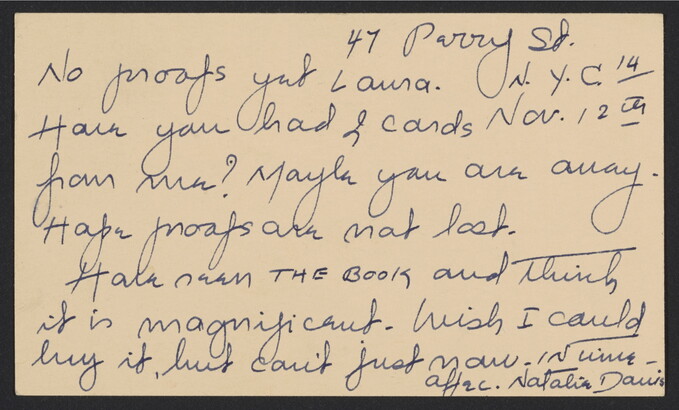 47 Perry St.
No proofs yet Laura. N.Y.C. 14
Have you had 2 cards Nov. 12th
from me? Maybe you are away.
Hope proofs are not lost.
Have seen THE BOOK and think
it is magnificent. Wish I could
buy it, but can't just now. In time -
affec. Natalie Davis